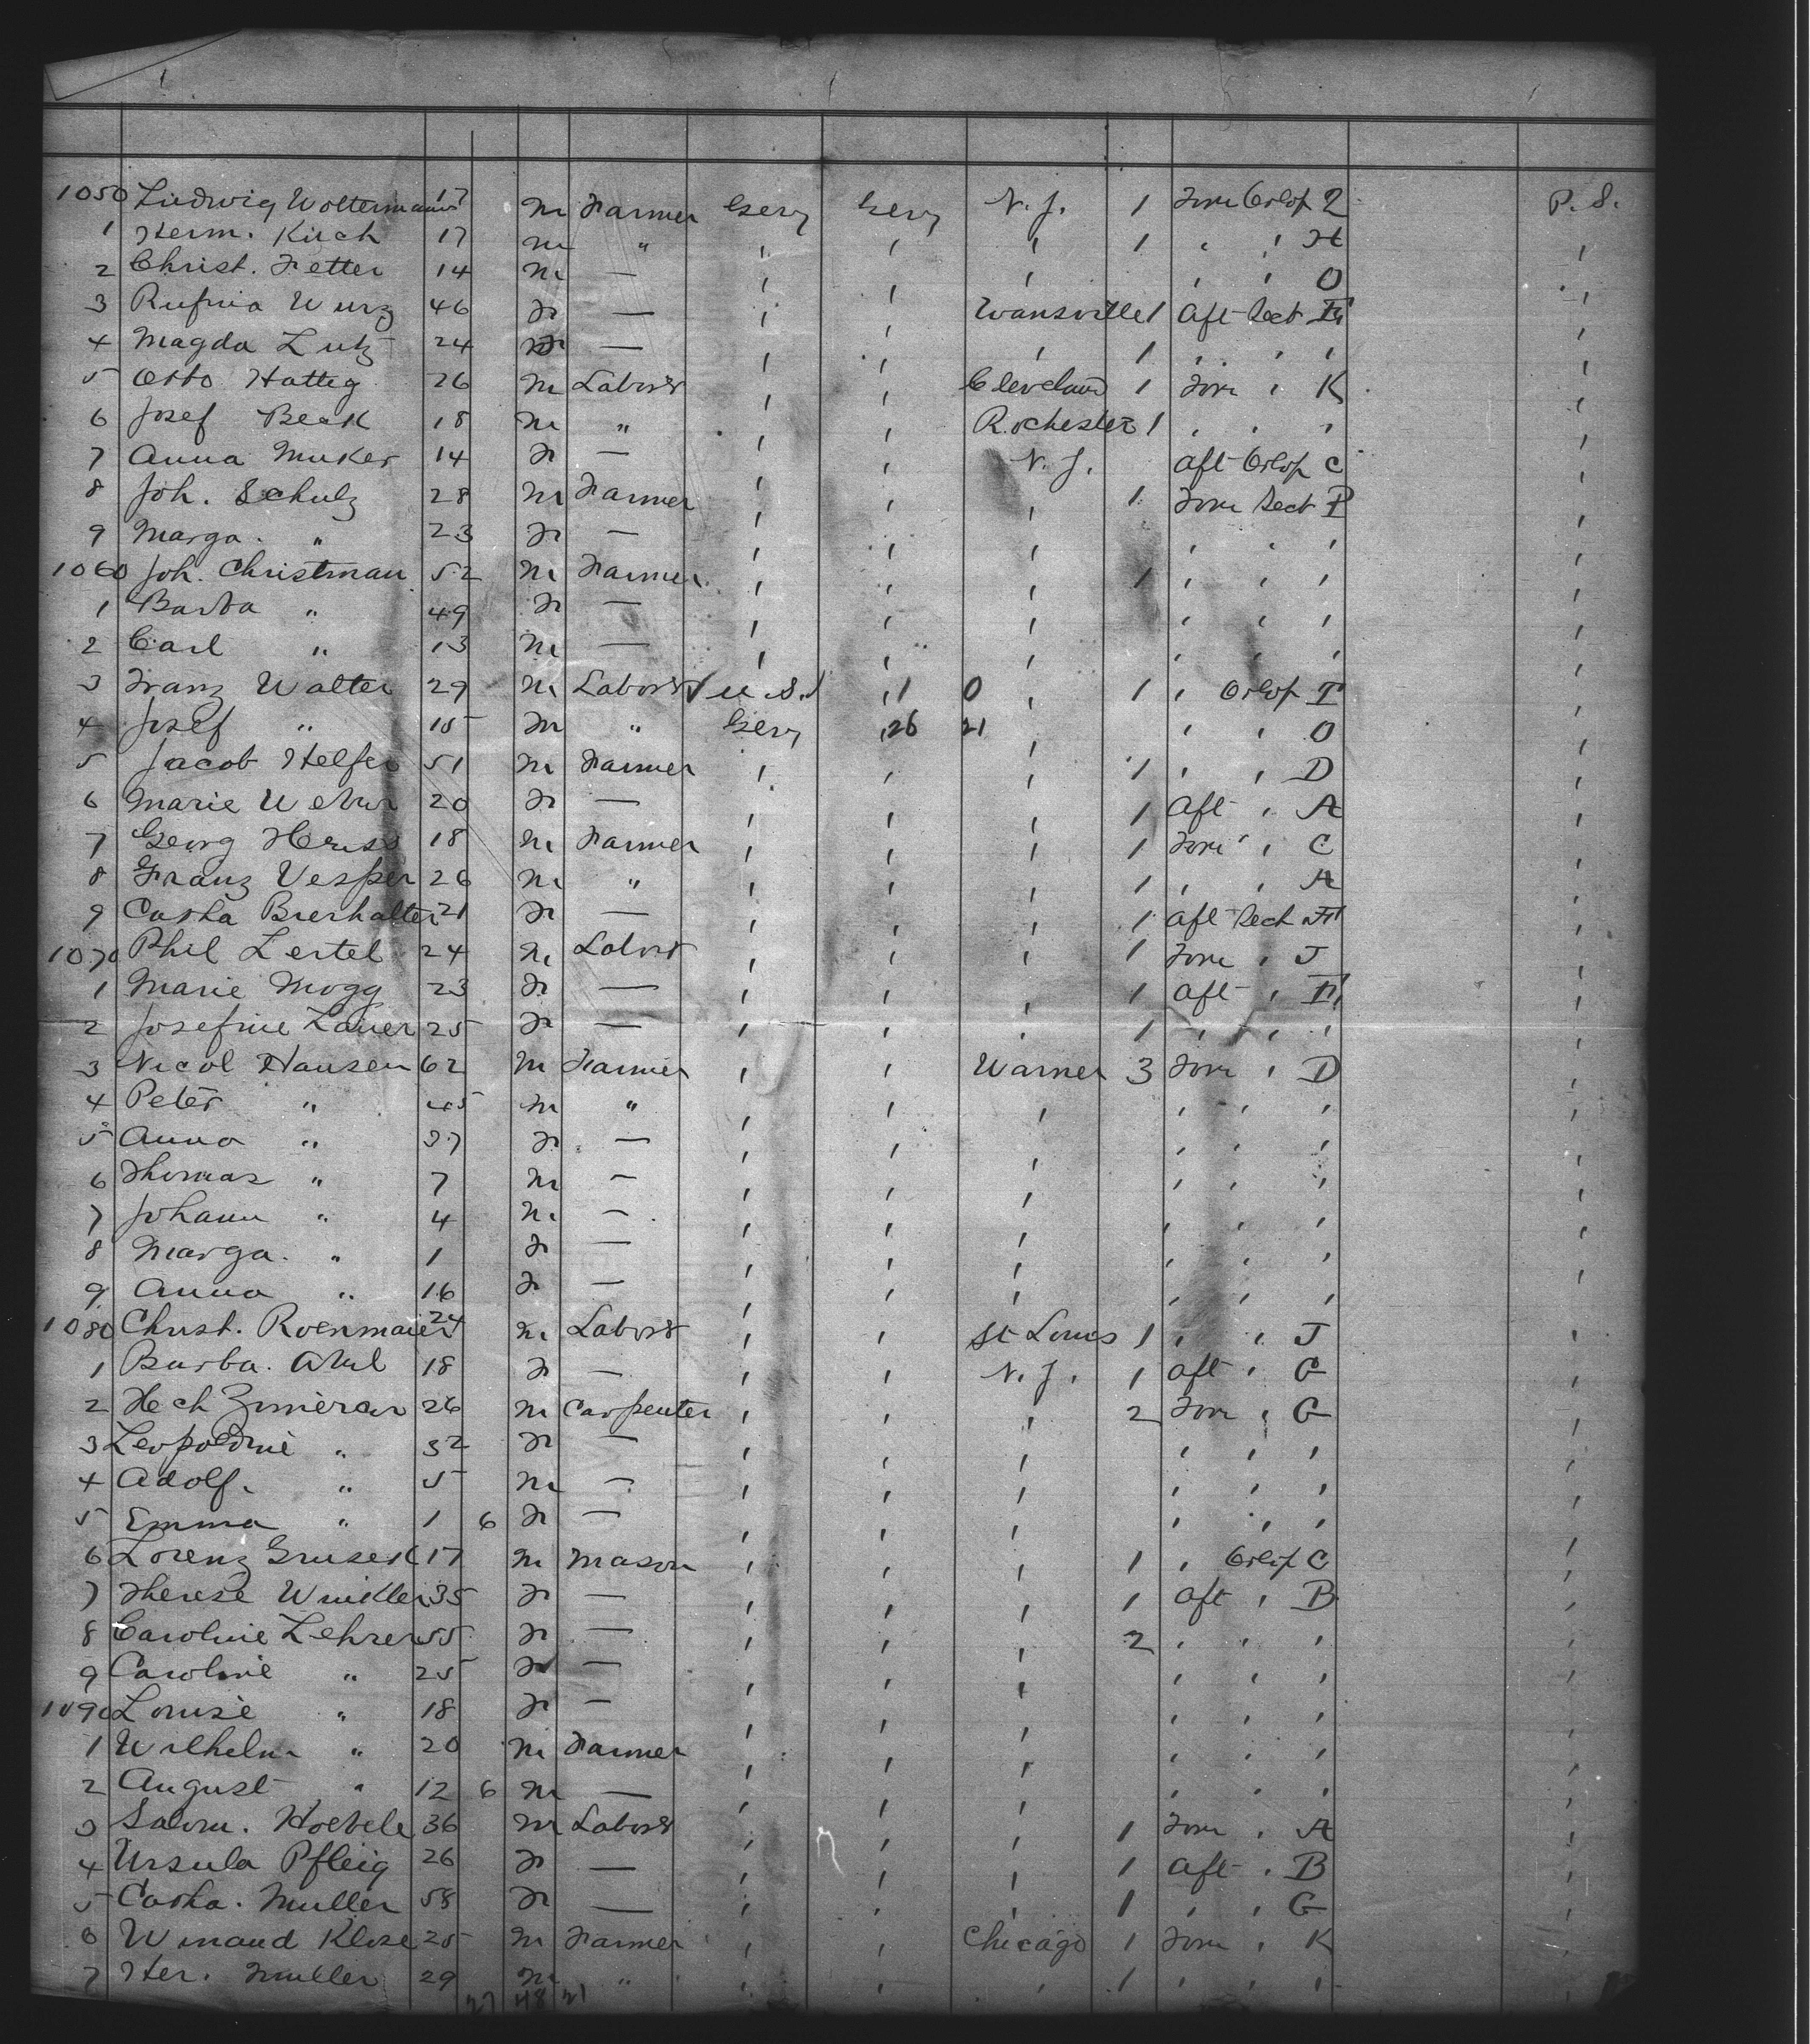 1050 Ludwig Woltermann 17 m Farmer Gery Gery N. J. 1 Forw Orlop 2 P. S.
1 Herm. Kirch 17 m " , , , 1 , , H ,
2 Christ. Fetter 14 m — , , , , , O ,
3 Rufina Wurz 46 F — , , Wansville 1 Aft Sect ,
4 Magda Lutz 24 — , , , 1 , , , ,
5 Otto Hatteg 26 m Labors , , Cleveland 1 Forw , K ,
6 Josef Beck 18 m " , , Rochester 1 , , , ,
7 Anna Muker 14 F — , , N. J. Aft Orlop C ,
8 Joh. Schulz 28 m Farmer , , , 1 Forw Sect P ,
9 Marga. " 23 F — , , , , , , ,
1060 Joh. Christman 52 m Farmer , , , 1 , , , ,
1 Barba " 49 F — , , , , , , ,
2 Carl " 13 m — , , , , , , ,
3 Franz Walter 29 m Labors U. S. , 1 0 , 1 , Orlop ,
4 Josef " 15 m " Gery , 26 21 , , , O ,
5 Jacob Helfer 51 m Farmer , , , 1 , , D ,
6 Marie Weber 20 F — , , , 1 Aft , A ,
7 Georg 18 m Farmer , , , 1 Forw , C ,
8 Franz Vesper 26 m " , , , 1 , , A ,
9 Catha Bierhalter 21 F — , , , 1 Aft Sect ,
1070 Phil Lertel 24 m Labors , , , 1 Forw , J ,
1 Marie Mogg 23 F — , , , 1 Aft , ,
2 Josefine Lauer 25 F — , , , 1 , , , ,
3 Nicol Hansen 62 m Farmer , , Warner 3 Forw , D ,
4 Peter " 45 m " , , , , , , ,
5 Anna " 37 F — , , , , , , ,
6 Thomas " 7 m — , , , , , , ,
7 Johann " 4 m — , , , , , , ,
8 Marga. " 1 F — , , , , , , ,
9 Anna " 16 F — , , , , , , ,
1080 Christ. Roenmaier 24 m Labors , , St Louis 1 , , J ,
1 Barba. Abel 18 F — , , N. J. 1 Aft , G ,
2 Hch 26 m Carpenter , , , 2 Forw , G ,
3 Leopoldine " 32 F — , , , , , , ,
4 Adolf. " 5 m — , , , , , , ,
5 Emma " 1 6 F — , , , , , , ,
6 Lorenz 17 m Mason , , , 1 , Orlop C ,
7 Therese Winkler 35 F — , , , 1 Aft , B ,
8 Caroline Lehrer 55 F — , , , 2 , , , ,
9 Caroline " 25 F — , , , , , , ,
1090 Louise " 18 F — , , , , , , ,
1 Wilhelm " 20 m Farmer , , , , , , ,
2 August " 12 6 m — , , , , , , ,
3 Salom. Hoebele 36 m Labors , , , 1 Forw , A ,
4 Ursula Pfleig 26 F — , , , 1 Aft , B ,
5 Catha. Muller 58 F — , , , 1 , , G ,
6 Winand Klose 25 m Farmer , , Chicago 1 Forw , K ,
7 Her. Muller 29 m " , , , 1 , , , ,
27 48 21